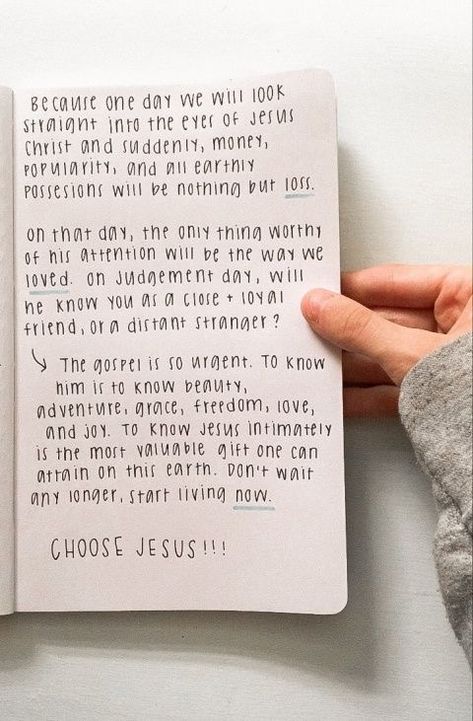 Because one day we will look
straight into the eyes of Jesus
Christ and suddenly, money,
popularity, and all earthly
possesions will be nothing but loss.
On that day, the only thing worthy
of his attention will be the way we
loved. On Judgement day, will
he know you as a close + loyal
friend, or a distant stranger?
↳ The gospel is so urgent. To know
him is to know beauty,
adventure, grace, freedom, love,
and joy. To know Jesus intimately
is the most valuable gift one can
attain on this earth. Don't wait
any longer, start living now.
CHOOSE JESUS!!!